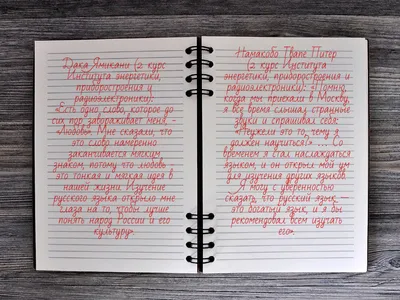 Дака Ямикани (2 курс
Института энергетики,
приборостроения и
радиоэлектроники):
«Есть одно слово, которое до
сих пор завораживает меня, -
«Любовь». Мне сказали, что
это слово намеренно
заканчивается мягким
знаком, потому что любовь -
это тонкая и мягкая идея в
нашей жизни. Изучение
русского языка открыло мне
глаза на то, чтобы лучше
понять народ России и его
культуру».
Намакобо Гвапе Питер
(2 курс Института
энергетики, приборостроения и
радиоэлектроники): «Помню,
когда мы приехали в Москву,
я все время слышал странные
звуки и спрашивал себя:
«Неужели это то, чему я
должен научиться?» ... Со
временем я стал наслаждаться
языком, и он открыл мой ум
для изучения других языков.
Я могу с уверенностью
сказать, что русский язык —
это богатый язык, и я бы
рекомендовал всем изучать
его».